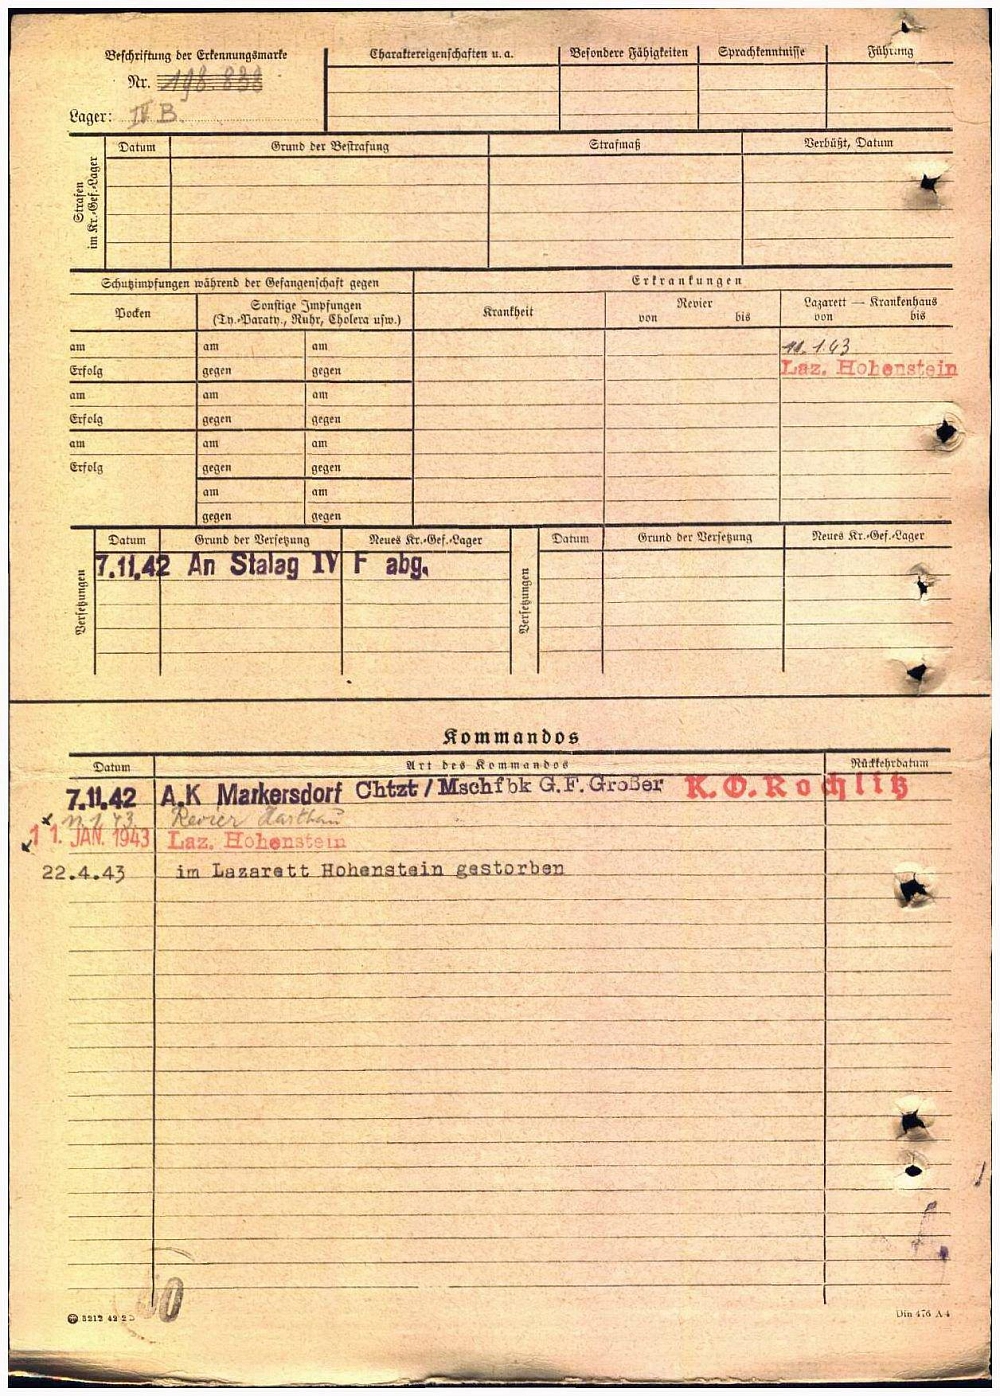 Beschriftung der Erkennungsmarke
Nr. 198 838
Lager: IV B
Charaktereigenschaften u. a.
Besondere Fähigkeiten
Sprachkenntnisse
Führung
Strafen im Kr.-Gef.-Lager
Datum
Grund der Bestrafung
Strafmaß
Verbüßt, Datum
Schutzimpfungen während der Gefangenschaft gegen
Erkrankungen
Pocken
Sonstige Impfungen
(Ty.-Paraty., Ruhr, Cholera usw.)
Krankheit
Revier
von bis
Lazarett — Krankenhaus
von bis
am am am
11.1.43
Erfolg gegen gegen
Laz. Hohenstein
am am am
Erfolg gegen gegen
am am am
Erfolg gegen gegen
am am
gegen gegen
Versetzungen
Datum Grund der Versetzung Neues Kr.-Gef.-Lager
7.11.42 An Stalag IV F abg.
Versetzungen
Datum Grund der Versetzung Neues Kr.-Gef.-Lager
Kommandos
Datum Art des Kommandos Rückkehrdatum
7.11.42 A.K Markersdorf Chtzt / Mschfbk G.F. Großer K.O. Rochlitz
11.1.43. Revier Harthau
11. JAN. 1943 Laz. Hohenstein
22.4.43 im Lazarett Hohenstein gestorben
5212 42 2
Din 476 A 4